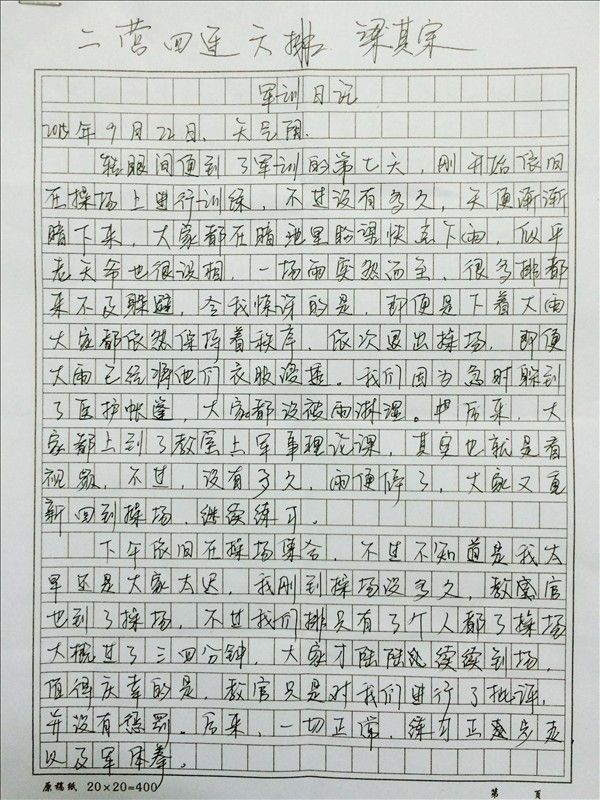 二营四连六排 梁其宗
军训日记
2015年9月22日、天气阴.
转眼间便到了军训的第七天,刚开始依旧
在操场上进行训练,不过没有多久,天便渐渐
暗下来,大家都在暗地里盼望快点下雨,似乎
老天爷也很识相,一场雨突然而至,很多排都
来不及躲避,令我惊讶的是,即便是下着大雨
大家都依然保持着秩序,依次退出操场,即便
大雨已经将他们衣服浸透。我们因为急时躲到
了医护帐篷,大家都没被雨淋湿。后来,大
家都上到了教室上军事理论课,其实也就是看
视频,不过,没有多久,雨便停了,大家又重
新回到操场,继续练习.
下午依旧在操场集合,不过不知道是我太
早还是大家太迟,我刚到操场没多久,教官
也到了操场,不过我们排只有了个人都了操场
大概过了三四分钟,大家才陆陆续续到场,
值得庆幸的是,教官只是对我们进行了批评,
并没有惩罚。后来,一切正常,练习正步走
以及军体拳。
原稿纸 20×20=400
第 页